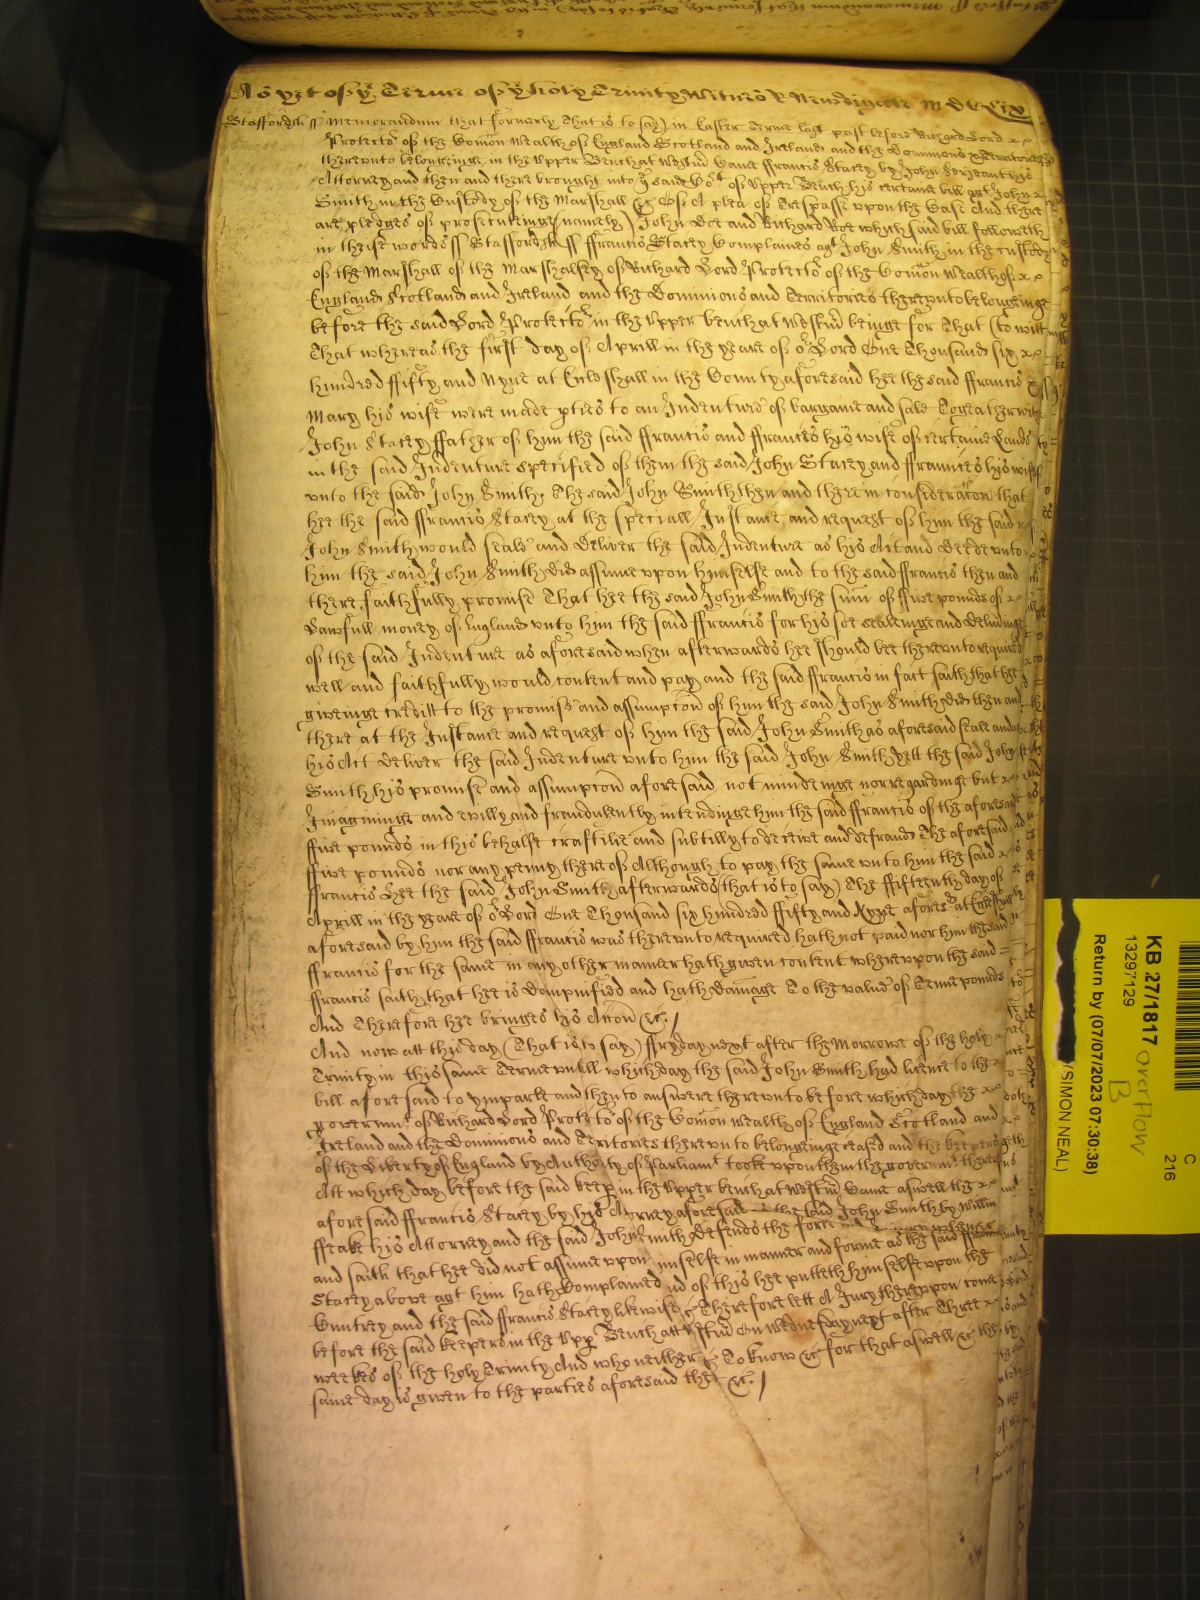 As yet of ye Terme of ye holy Trinity Witnes R Newdigate MDCLIX
Staffordsh ss Memorandum that formerly That is to say) in Easter Terme last past before Richard Lord
Protector of the Comon Wealth of England Scotland and Ireland and the Dominions & Territoryes
thereunto belonginge in the Upper Bench at Westm Came ffrancis Stacey by John Serjeant his
Attorney and then and there brought into ye said Cort of Upper Bench his certaine bill agt John
Smith in the Custody of the Marshall &c Of A plea of Trespasse upon the Case And there
are pledges of prosecutinge (namely) John Doe and Richard Roe which said bill followeth
in theise words ss Staffordsh ss ffrancis Stacey Complaines agt John Smith in the custody
of the Marshall of the Marshalsey of Richard Lord Protector of the Comon Wealth of
England Scotland and Ireland and the Dominions and Territories thereunto belonginge
before the said Lord Protector in the Upper bench at Westm beinge for That (to witt)
That whereas the first day of Aprill in the yeare of or Lord One Thousand six
hundred ffifty and Nyne at Eccleshall in the County aforesaid hee the said ffrancis &
Mary his wife were made pties to an Indenture of bargaine and sale Togeather with
John Stacey ffather of him the said ffrancis and ffrances his wife of certaine Lands
in the said Indenture specified of them the said John Stacey and ffrances his wife
unto the said John Smith, The said John Smith then and there in consideracon that
hee the said ffrancis Stacey at the speciall Instance and request of him the said
John Smith would seale and Deliver the said Indenture as his Act and Deede unto
him the said John Smith did assume upon himselfe and to the said ffrancis then and
there faithfully promise That hee the said John Smith the sum of ffive pounds of
Lawfull money of England unto him the said ffrancis for his soe sealeinge and Deliveringe
of the said Indenture as aforesaid when afterwards hee should bee thereunto required
well and faithfully would content and pay and the said ffrancis in fact saith that hee
giveinge creditt to the promise and assumpcon of him the said John Smith did then and
there at the Instance and request of him the said John Smith as aforesaid seale and as
his Act Deliver the said Indenture unto him the said John Smith Yett the said John
Smith his promise and assumpcon aforesaid not mindeinge nor regardinge but
Imagininge and
ffive pounds in this behalfe craftilie and subtilly to deceive and defraud The aforesaid
ffive pounds nor any penny thereof Although to pay the same unto him the said
ffrancis hee the said John Smith afterwards (that is to say) The ffifteenth day of
Aprill in the yeare of or Lord One Thousand six hundred ffifty and Nyne aforesd at Eccleshall
aforesaid by him the said ffrancis was thereunto required hath not paid nor him the said
ffrancis for the same in any other manner hath given content whereupon the said
ffrancis saith that hee is Dampnified and hath Damage To the value of Tenne pounds
And Therefore hee bringes his Accon &c.
And now att this day (That is to say) ffryday next after the Morrowe of the holy
Trinity in this same Terme untill which day the said John Smith had licence to the
bill aforesaid to imparle and then to answere thereunto before which day the
governmt of Richard Lord Protector of the Comon Wealth of England Scotland and
Ireland and the Dominions and Territories thereunto belonginge ceased and the keepers
of the Liberty of England by Authority of Parliamt tooke upon them the governmt thereof
Att which day before the said keepers in the Upper bench at Westm Came aswell the
aforesaid ffrancis Stacey by his Attorney aforesaid the said John Smith by Willm
ffeake his Attorney and the said John Smith Defends the force
and saith that hee did not assume upon himselfe in manner and forme as the said ffrancis
Stacey above agt him hath Complained And of this hee putteth himselfe upon the
Cuntrey and the said ffrancis Stacey likewise &c Therefore lett A Jury thereupon come
before the said keepers in the Upp Bench att Westm On Wednesday next after Three
weekes of the holy Trinity And who neither &c To know &c for that aswell &c the
same day is given to the parties aforesaid there &c.
KB 27/1817
13297129
Return by (07/07/2023 07:30:38)
overflow
B
C
216
/SIMON NEAL)